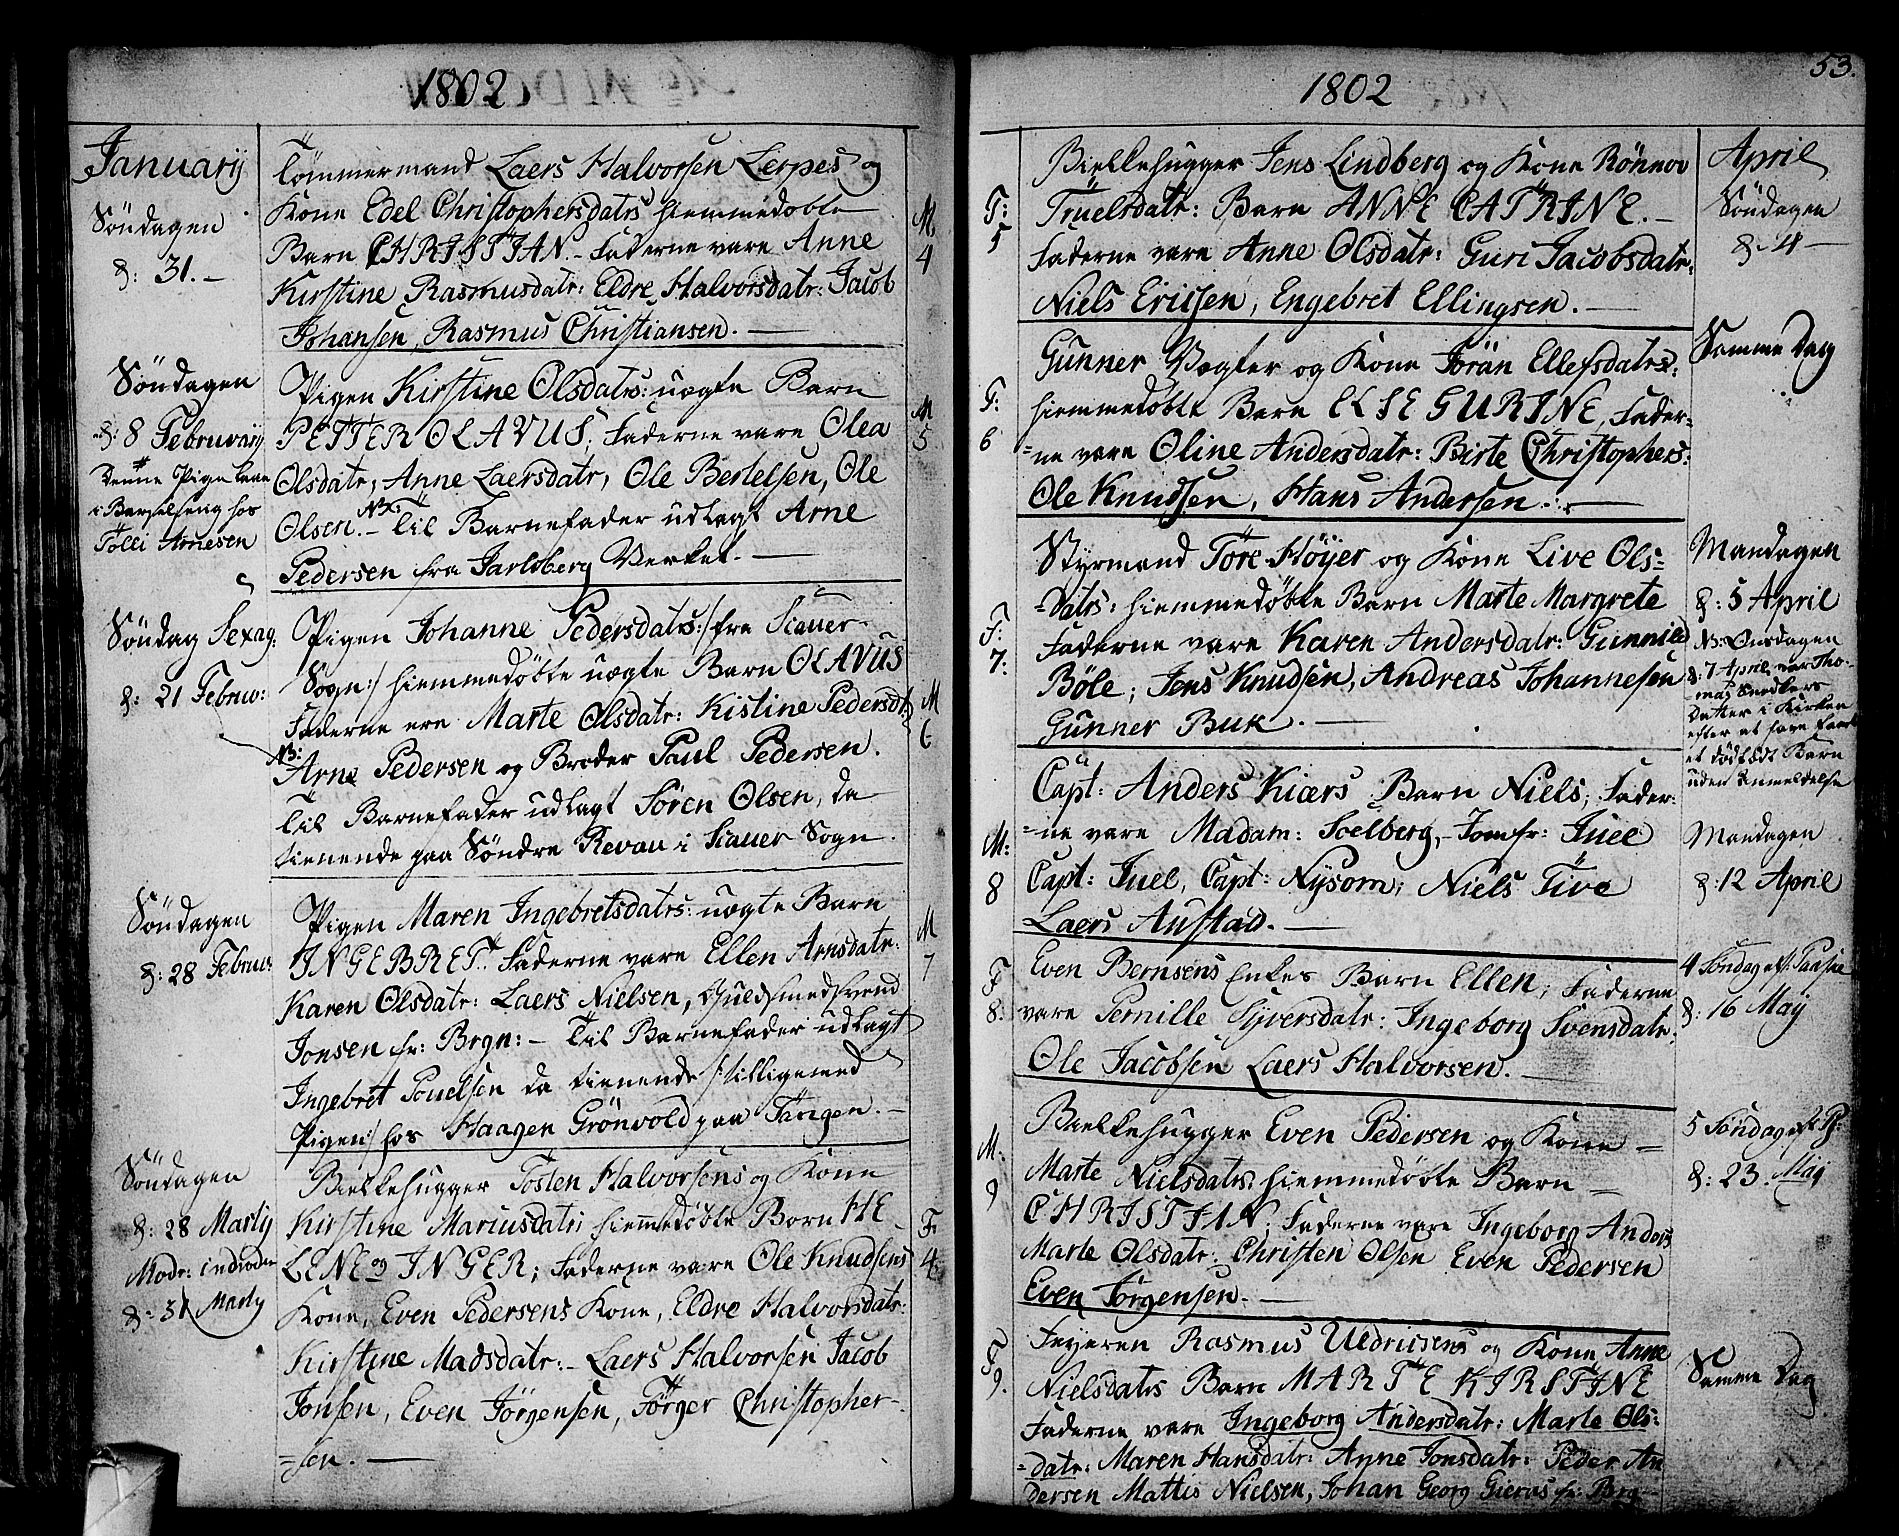 1802
Januarij
Söndagen
d: 31. –
Tömmermand Laers Halvorsen Lerpes og
Kone Edel Christophersdatrs hiemmedöbte
Barn CHRISTIAN. – Faderne vare Anne
Kirstine Rasmusdatr: Eldre Halvorsdatr: Jacob
Johansen, Rasmus Christiansen. —
M.
4
Söndagen
d: 8 Februarij
Denne Pige laae
i Barselseng hos
Tolli Arnesen
Pigen Kirstine Olsdatrs: uægte Barn
PETTER OLAVUS; Faderne vare Olea
Olsdatr, Anne Laersdatr, Ole Bertelsen, Ole
Olsen. – Til Barnefader udlagt Arne
Pedersen fra Jarlsberg Verket. —
M
5
Söndag Sexag:
d: 21 Februar:
Pigen Johanne Pedersdatrs: /: fra Scauer-
Sogn :/ hiemmedöbte uægte Barn OLAVUS
Faderne ere Marte Olsdatr: Kistine Pedersdt:
NB:
Arne Pedersen og Broder Paul Pedersen.
Til Barnefader udlagt Sören Olsen, da
tienende paa Söndre Revau i Scauer Sogn.
M
6
Söndagen
d: 28 Februar:
Pigen Maren Ingebretsdatrs: uægte Barn
INGEBRET. Faderne vare Ellen Arnsdatr:
Karen Olsdatr: Laers Nielsen, Guldsmedsvend
Jonsen fr: Brgn: – Til Barnefader udlagt
Ingebret Pouelsen da tienende /: tilligemed
Pigen :/ hos Haagen Grönvold paa Tangen. –
M
7
Söndagen
d: 28 Martij
Modr: introd:
d: 31 Martij
Bielkehugger Tosten Halvorsens og Kone
Kirstine Mariusdatr: hiemmedöbte Börn HE-
LENE og INGER; Faderne vare Ole Knudsens
Kone, Even Pedersens Kone, Eldre Halvorsdatr:
Kirstine Madsdatr: – Laers Halvorsen Jacob
Jonsen, Even Jörgensen, Törger Christopher-
=sen. —
F.
4
1802
53.
F:
5
Bielkehugger Jens Lindberg og Kone Rönnov
Truelsdatr: Barn ANNE CATRINE. –
Faderne vare Anne Olsdatr: Guri Jacobsdatr:
Niels Ericsen, Engebret Ellingsen. —
April
Söndagen
d. 4 –
F:
6
Gunner Vegter og Kone Jöran Ellefsdatrs:
hiemmedöbte Barn ELSE GURINE, Fader-
=ne vare Oline Andersdatr: Birte Christophers:
Ole Knudsen, Hans Andersen. —
Samme Dag
F:
7:
Styrmand Töre Höyer og Kone Live Ols-
=datrs: hiemmedöbte Barn Marte Margrete
Faderne vare Karen Andersdatr: Gunnild
Böle; Jens Knudsen, Andreas Johannesen
Gunner Buk. —
Mandagen
d: 5 April
NB: Onsdagen
d: 7 April var Tho-
mas Snedkers
Datter i Kirken
efter at have faaet
et dödfödt Barn
uden Anmeldelse
M:
8
Capt: Anders Kiærs Barn Niels; Fader-
=ne vare Madam: Soelberg, – Jomfr: Juel
Capt: Juel, Capt: Nysom; Niels Tive
Laers Austad. —
Mandagen
d: 12 April
F
8.
Even Bernsens Enkes Barn Ellen; Faderne
vare Pernille Syversdatr: Ingeborg Svensdatr:
Ole Jacobsen Laers Halvorsen. —
4 Söndag eft: Paaske
d: 16 Maij
M:
9
Bielkehugger Even Pedersen og Kone –
Marte Nielsdatrs hiemmedöbte Barn –
CHRISTIAN; Faderne vare Ingeborg Anders
Marte Olsdatr: Christen Olsen Even Pedersen
Even Jörgensen. —
5 Söndag eft P:
d: 23. Maij
F
9.
Feyeren Rasmus Uldricsens og Kone Anne
Nielsdatrs Barn MARTE KIRSTINE
Faderne vare Ingeborg Andersdatr: Marte Ols-
=datr: Maren Hansdatr: Anne Jonsdatr: Peder An
dersen Mattis Nielsen, Johan Georg Gierus fr: Brg–
Samme Dag